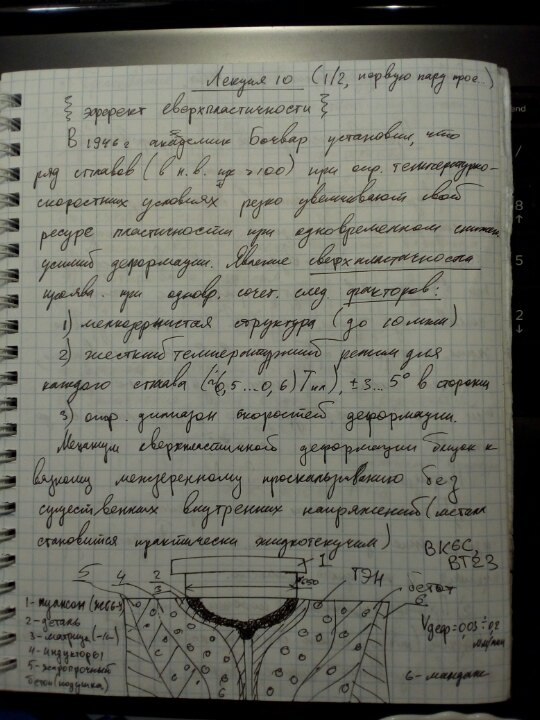 Лекция 10 (1/2, первую пару прос...)
{ эффект сверхпластичности }
В 1946 г академик Бочвар установил, что
ряд сплавов (в н.в. их >100) при опр. температурно-
скоростных условиях резко увеличивают свой
ресурс пластичности при одновременном снижен.
усилий деформации. Явление сверхпластичности
проявл. при одновр. сочет. след. факторов:
1) мелкозернистая структура (до 10 мкм)
2) жесткий температурный режим для
каждого сплава (~0,5...0,6) Tпл), ±3...5° в стороны
3) опр. диапазон скоростей деформации.
Механизм сверхпластичной деформации близок к
вязкому межзеренному проскальзыванию без
существенных внутренних напряжений (металл
становится практически жидкотекучим)
ВК6С,
ВТ23
5 4 2 3 1 ТЭН бетон 6
1- пуансон
2- деталь
3- матрица
4- индукторы
5- жаропрочный
бетон (подушка)
Vдеф=0,03÷0,2
мм/мин
6
6- мандаж